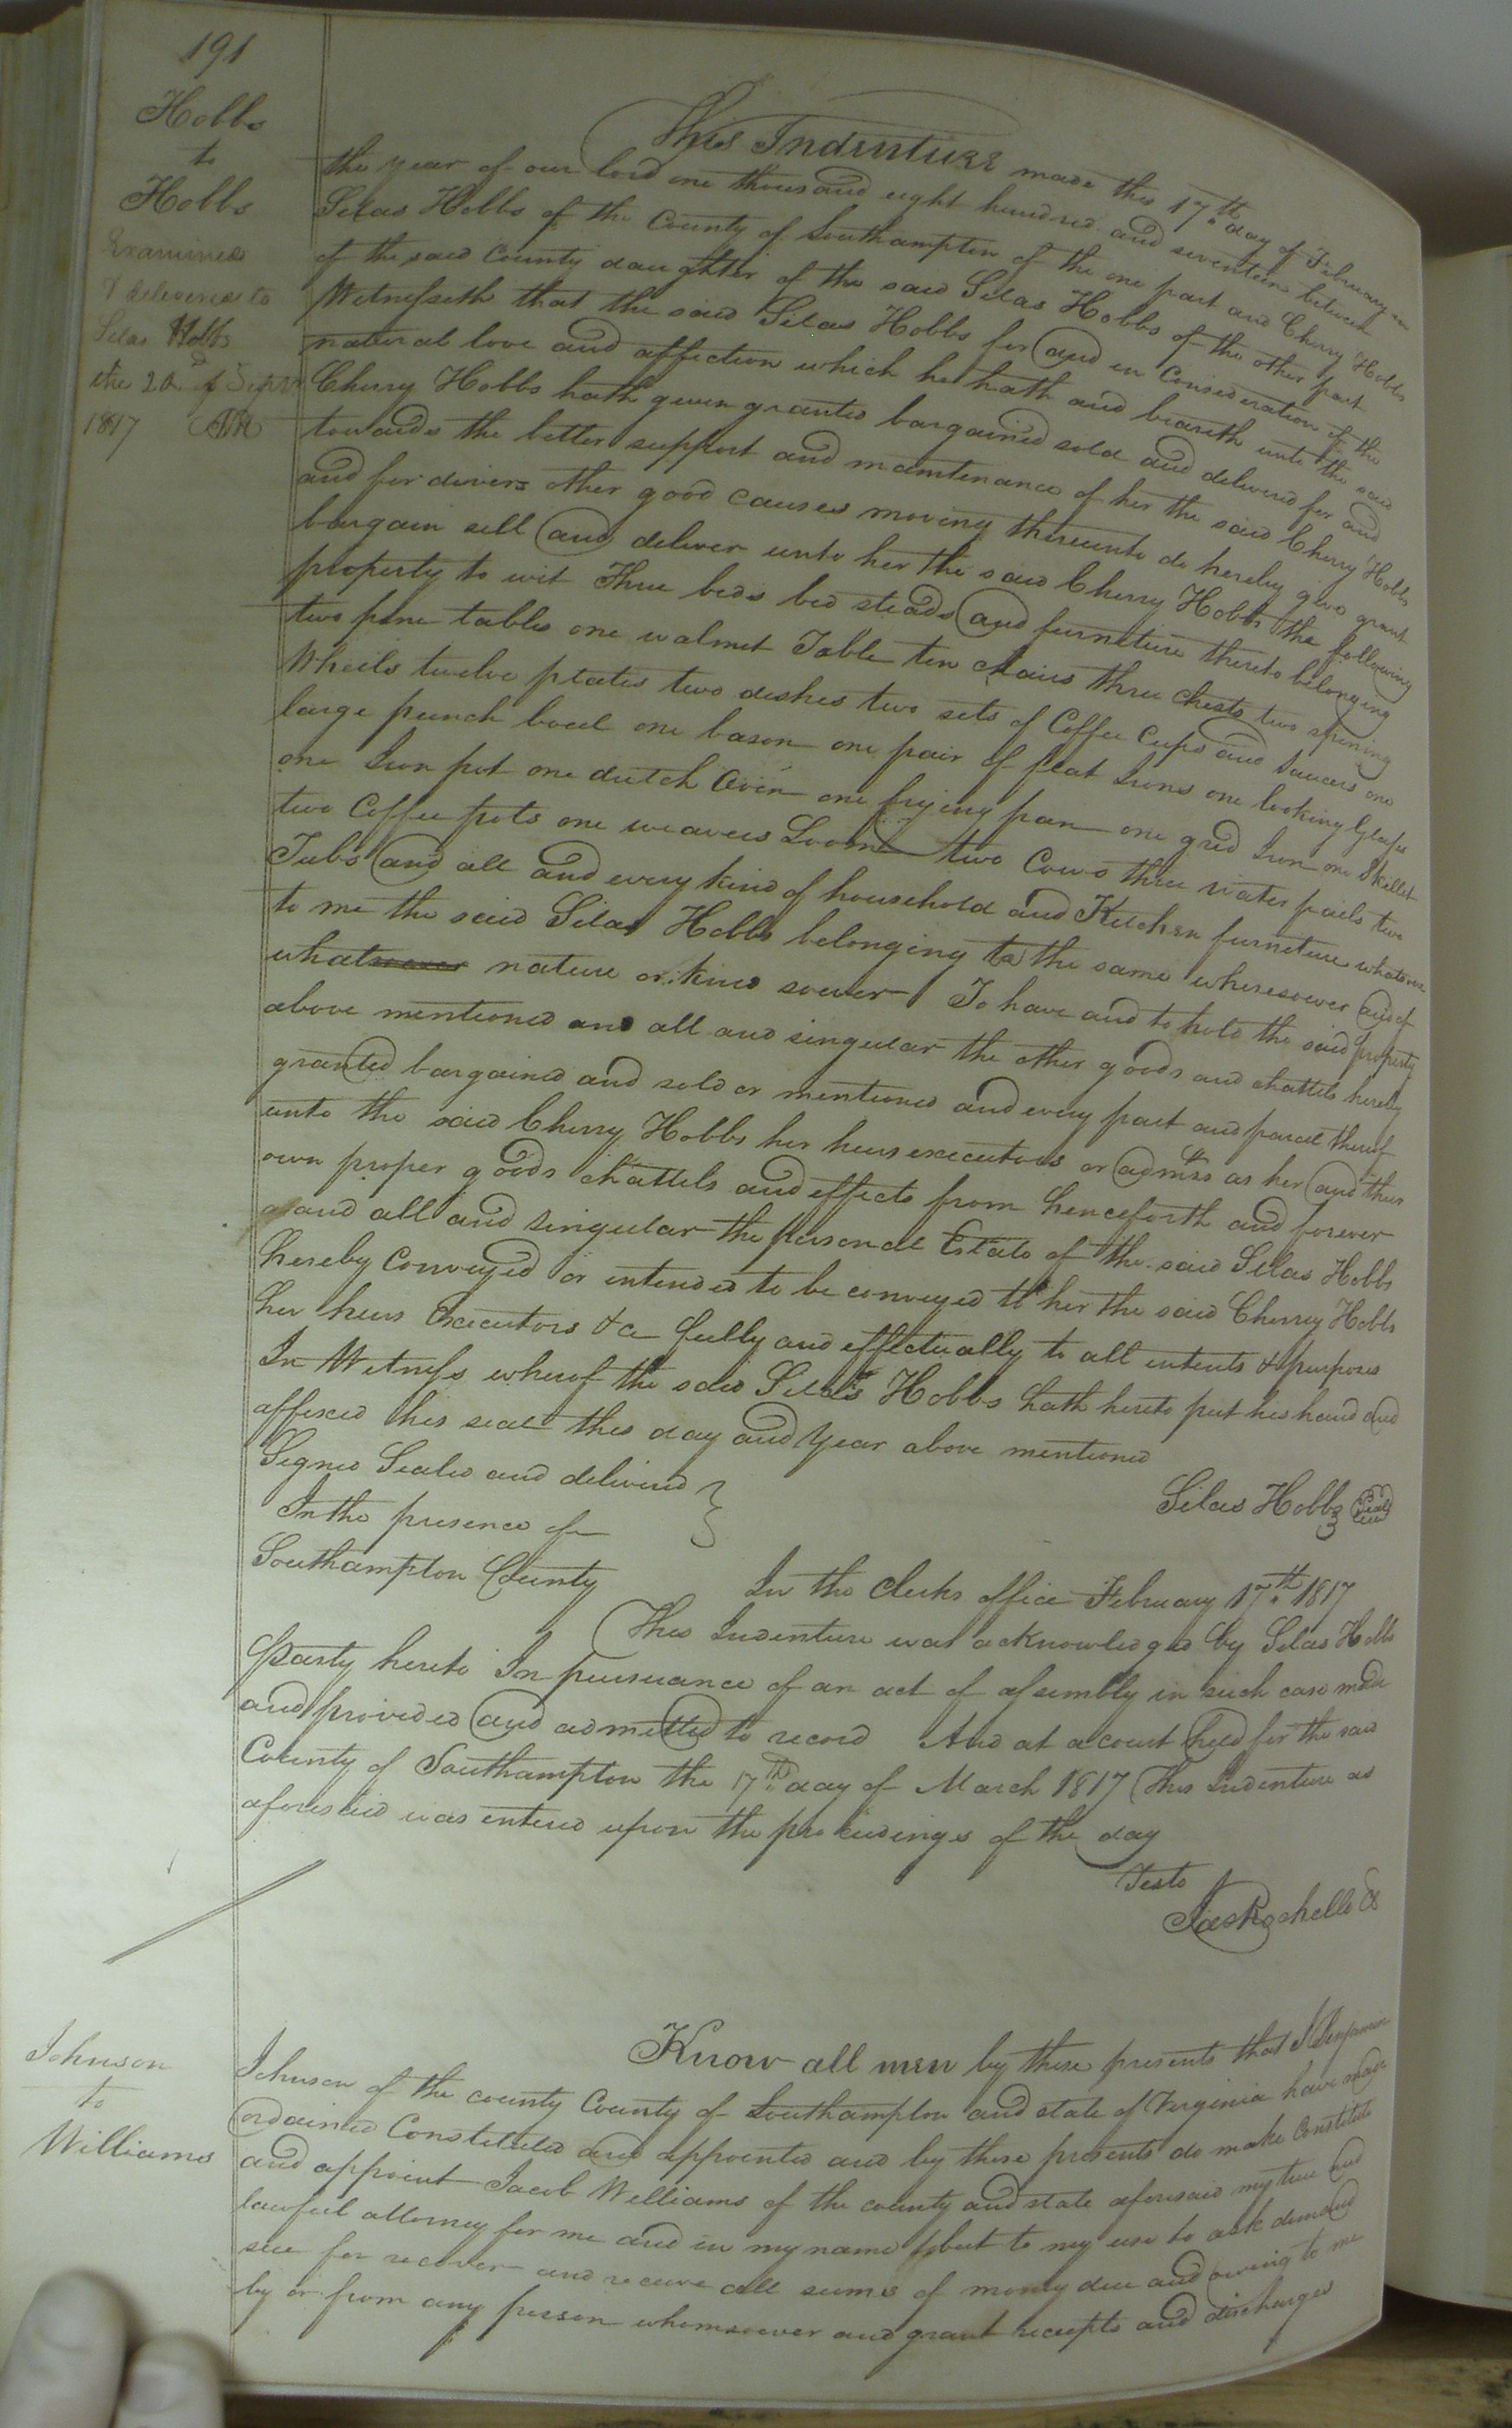 191
Hobbs
to
Hobbs
Examined
& delivered to
Silas Hobbs
the 20 of Sepr
1817
This Indenture made this 17th day of February in
the year of our lord one thousand eight hundred and seventeen between
Silas Hobbs of the County of Southampton of the one part and Cherry Hobbs
of the said County daughter of the said Silas Hobbs of the other part
Witnesseth that the said Silas Hobbs for and in Consideration of the
natural love and affection which he hath and beareth unto the said
Cherry Hobbs hath given granted bargained sold and delivered for and
towards the better support and maintenance of her the said Cherry Hobbs
and for divers other good causes moving thereunto do hereby give grant
bargain sell and deliver unto her the said Cherry Hobbs the following
property to wit Three beds bed steads and furniture thereto belonging
two pine tables one walnut Table ten chairs three chests two spining
Wheels twelve plates two dishes two sets of Coffee Cups and Saucers one
large punch bowl one bason one pair of flat Irons one looking Glass
one Iron pot one dutch oven one frying pan one grid Iron one Skillet
two Coffee pots one weavers Loom two Cows three water pails two
Tubs and all and every kind of household and Kitchen furniture whatever
to me the said Silas Hobbs belonging to the same wheresoever and of
what nature or kind soever To have and to hold the said property
above mentioned and all and singular the other goods and chattels hereby
granted bargained and sold or mentioned and every part and parcel thereof
unto the said Cherry Hobbs her heirs executors or admrs as her and their
own proper goods chattels and effects from henceforth and forever
and all and singular the personal Estate of the said Silas Hobbs
hereby Conveyed or intended to be conveyed to her the said Cherry Hobbs
her heirs Executors &c fully and effectually to all intents & purposes
In Witness whereof the said Silas Hobbs hath hereto put his hand and
affixed his seal this day and Year above mentioned
Signed Sealed and delivered
In the presence of
Silas Hobbs Seal
Southampton County
In the Clerks office February 17th 1817
This Indenture was acknowledged by Silas Hobbs
Party hereto In pursuance of an act of assembly in such case made
and provided and admitted to record And at a court held for the said
County of Southampton the 17th day of March 1817 This Indenture as
aforesaid was entered upon the proceedings of the day
Teste
Jas Rochelle Cl
Johnson
to
Williams
Know all men by these presents that I Benjamin
Johnson of the county County of Southampton and state of Virginia have made
ordained Constituted and appointed and by these presents do make Constitute
and appoint Jacob Williams of the county and state aforesaid my true and
lawful attorney for me and in my name but to my use to ask demand
sue for recover and receive all sums of money due and owing to me
by or from any person whomsoever and grant receipts and discharges